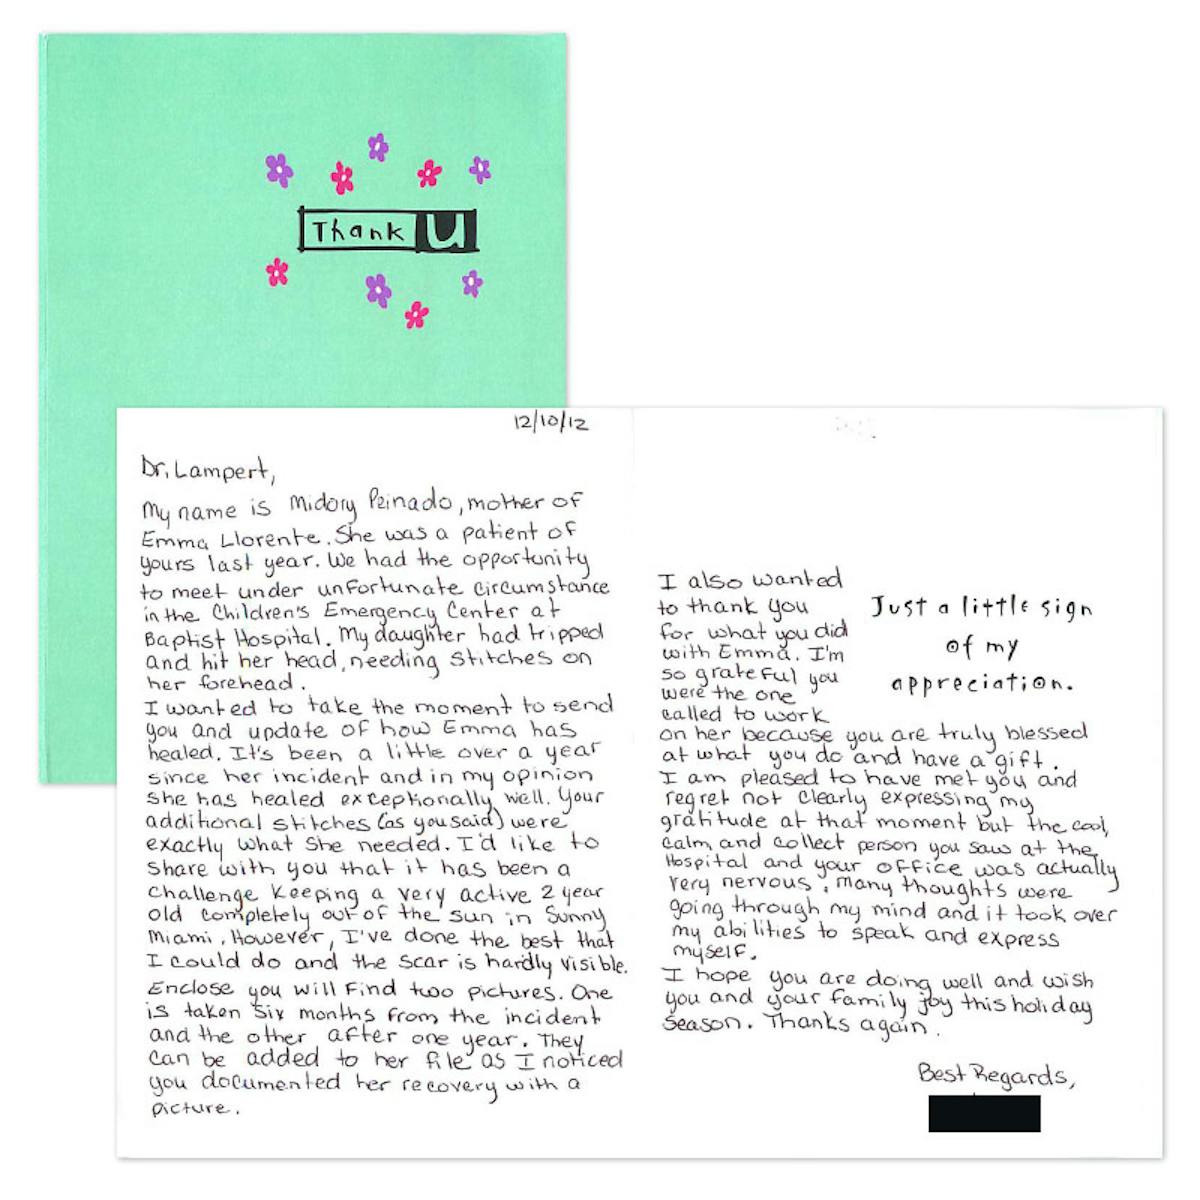 Thank U
12/10/12
Dr. Lampert,
My name is Midory Peinado, mother of
Emma Llorente. She was a patient of
yours last year. We had the opportunity
to meet under unfortunate circumstance
in the Children's Emergency Center at
Baptist Hospital. My daughter had tripped
and hit her head, needing stitches on
her forehead.
I wanted to take the moment to send
you and update of how Emma has
healed. It's been a little over a year
since her incident and in my opinion
she has healed exceptionally well. Your
additional stitches (as you said) were
exactly what she needed. I'd like to
share with you that it has been a
challenge keeping a very active 2 year
old completely out of the sun in Sunny
Miami. However, I've done the best that
I could do and the scar is hardly visible.
Enclose you will find two pictures. One
is taken six months from the incident
and the other after one year. They
can be added to her file as I noticed
you documented her recovery with a
picture.
I also wanted
to thank you
for what you did
with Emma. I'm
so grateful you
were the one
called to work
on her because you are truly blessed
at what you do and have a gift.
I am pleased to have met you and
regret not clearly expressing my
gratitude at that moment but the cool,
calm, and collect person you saw at the
Hospital and your office was actually
very nervous. Many thoughts were
going through my mind and it took over
my abilities to speak and express
myself.
I hope you are doing well and wish
you and your family joy this holiday
season. Thanks again.
Best Regards,
Just a little sign
of my
appreciation.